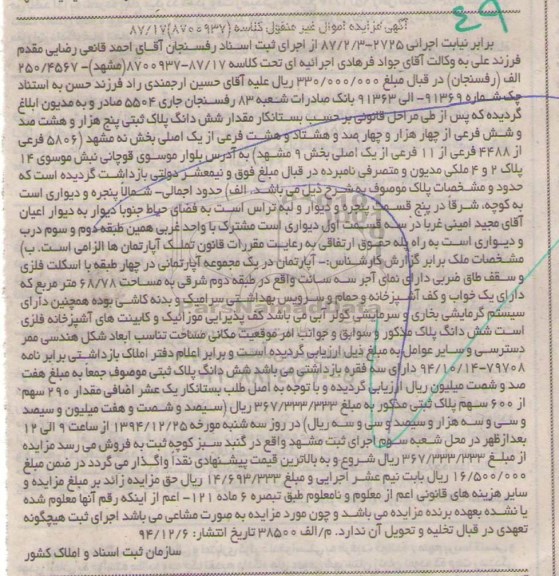 ۴۹
آگهی مزایده اموال غیر منقول کلاسه (۸۷۰۰۹۳۷)۸۷/۱۷
برابر نیابت اجرائی ۲۷۲۵-۸۷/۲/۳ از اجرای ثبت اسناد رفسنجان آقای احمد قانعی رضایی مقدم
فرزند علی به وکالت آقای جواد فرهادی اجرائیه ای تحت کلاسه ۸۷/۱۷-۸۷۰۰۹۳۷(مشهد)- ۲۵۰/۴۵۶۷
الف (رفسنجان) در قبال مبلغ ۳۳۰/۰۰۰/۰۰۰ ریال علیه آقای حسین ارجمندی راد فرزند حسن به استناد
چک شماره ۹۱۳۶۹- الی ۹۱۳۶۳ بانک صادرات شعبه ۸۳ رفسنجان جاری ۵۵۰۴ صادر و به مدیون ابلاغ
گردیده که پس از طی مراحل قانونی بر حسب بستانکار مقدار شش دانگ پلاک ثبتی پنج هزار و هشت صد
و شش فرعی از چهار هزار و چهار صد و هشتاد و هشت فرعی از یک اصلی بخش نه مشهد (۵۸۰۶ فرعی
از ۴۴۸۸ فرعی از ۱۱ فرعی از یک اصلی بخش ۹ مشهد) به آدرس بلوار موسوی قوچانی نبش موسوی ۱۴
پلاک ۲ و ۴ ملکی مدیون و متصرفی نامبرده در قبال مبلغ فوق و نیمعشر دولتی بازداشت گردیده است که
حدود و مشخصات پلاک موصوف به شرح ذیل می باشد. الف) حدود اجمالی- شمالا پنجره و دیواری است
به کوچه، شرقا در پنج قسمت پنجره و دیوار و لبه تراس است به فضای حیاط جنوبا دیوار به دیوار اعیان
آقای مجید امینی غربا در سه قسمت اول دیواری است مشترک با واحد غربی همین طبقه دوم و سوم درب
و دیواری است به راه پله حقوق ارتفاقی به رعایت مقررات قانون تملک آپارتمان ها الزامی است. ب)
مشخصات ملک برابر گزارش کارشناس:- آپارتمان در یک مجموعه آپارتمانی در چهار طبقه با اسکلت فلزی
و سقف طاق ضربی دارای نمای آجر سه سانت واقع در طبقه دوم شرقی به مساحت ۶۸/۷۸ متر مربع که
دارای یک خواب و کف آشپزخانه و حمام و سرویس بهداشتی سرامیک و بدنه کاشی بوده همچنین دارای
سیستم گرمایشی بخاری و سرمایشی کولر آبی می باشد کف پذیرایی موزائیک و کابینت های آشپزخانه فلزی
است شش دانگ پلاک مذکور و سوابق و جوانب امر موقعیت مکانی مساحت تناسب ابعاد شکل هندسی ممر
دسترسی و سایر عوامل به مبلغ ذیل ارزیابی گردیده است و برابر اعلام دفتر املاک بازداشتی برابر نامه
۷۹۷۰۸-۹۴/۱۰/۱۴ دارای سه فقره بازداشتی می باشد شش دانگ پلاک ثبتی موصوف جمعا به مبلغ هفت
صد و شصت میلیون ریال ارزیابی گردیده و با توجه به اصل طلب بستانکار یک عشر اضافی مقدار ۲۹۰ سهم
از ۶۰۰ سهم پلاک ثبتی مذکور به مبلغ ۳۶۷/۳۳۳/۳۳۳ ریال (سیصد و شصت و هفت میلیون و سیصد
و سی و سه هزار و سیصد و سی و سه ریال) در روز سه شنبه مورخه ۱۳۹۴/۱۲/۲۵ از ساعت ۹ الی ۱۲
بعدازظهر در محل شعبه سوم اجرای ثبت مشهد واقع در گنبد سبز کوچه ثبت به فروش می رسد مزایده
از مبلغ ۳۶۷/۳۳۳/۳۳۳ ریال شروع و به بالاترین قیمت پیشنهادی نقدا واگذار می گردد در ضمن مبلغ
۱۶/۵۰۰/۰۰۰ ریال بابت نیم عشر اجرایی و مبلغ ۱۴/۶۹۳/۳۳۳ ریال حق مزایده زائد بر مبلغ مزایده و
سایر هزینه های قانونی اعم از معلوم و نامعلوم طبق تبصره ۶ ماده ۱۲۱- اعم از اینکه رقم آنها معلوم شده
یا نشده بعهده برنده مزایده می باشد و چون مورد مزایده به صورت مشاعی می باشد اجرای ثبت هیچگونه
تعهدی در قبال تخلیه و تحویل آن ندارد. م/الف ۳۸۵۰۰ تاریخ انتشار: ۹۴/۱۲/۶
سازمان ثبت اسناد و املاک کشور